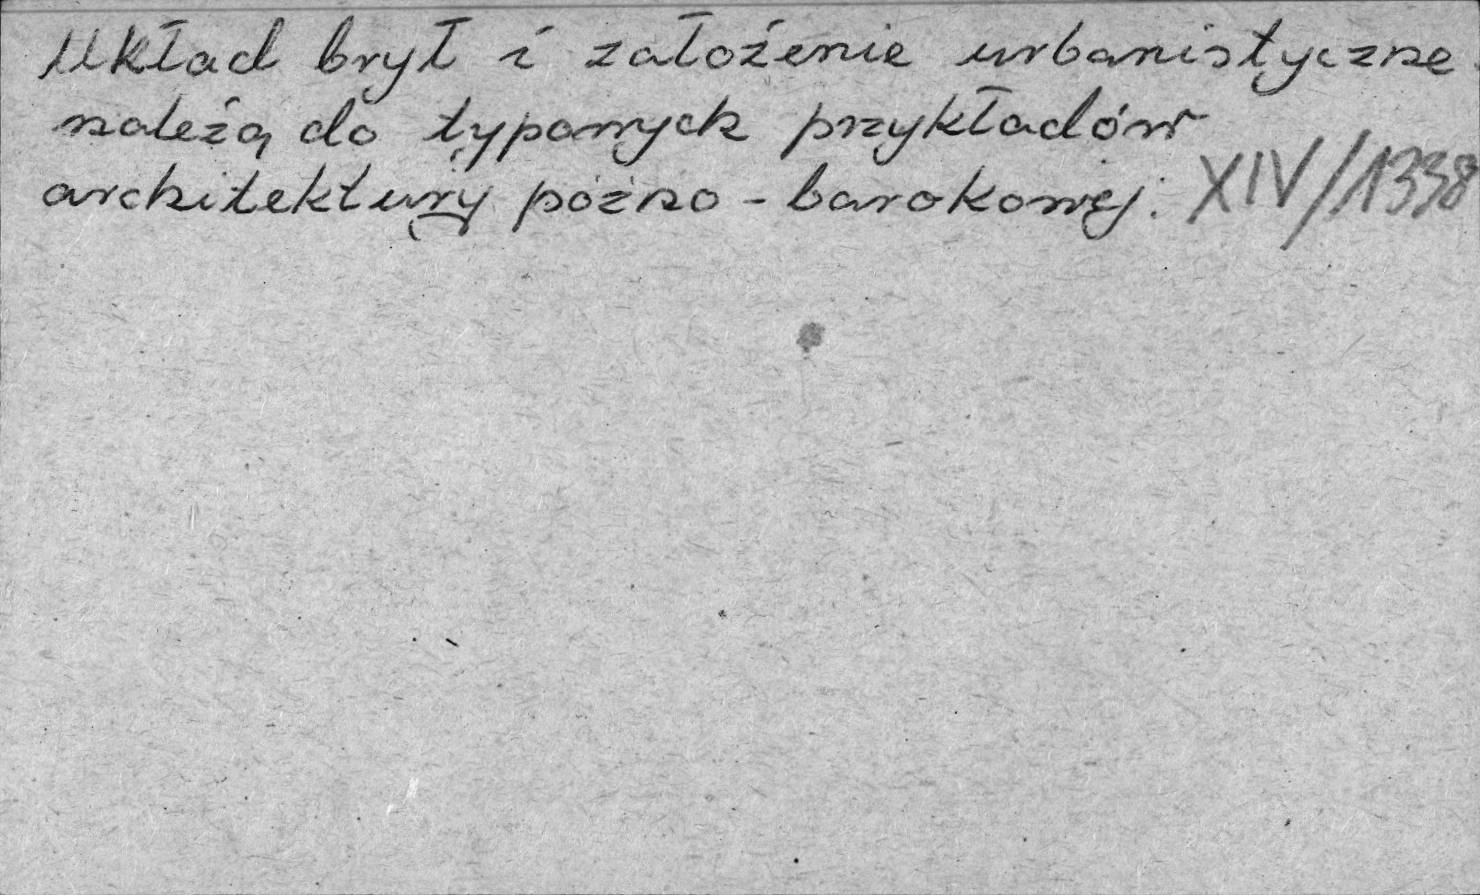 Układ brył i założenie urbanistyczne
należą do typowych przykładów
architektury pózno - barokowej. XIV/1338